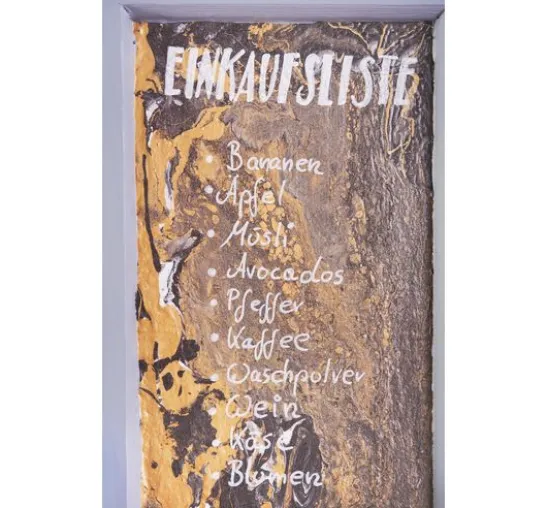 EINKAUFSLISTE
• Bananen
• Äpfel
• Müsli
• Avocados
• Pfeffer
• Kaffee
• Waschpolver
• Wein
• Käse
• Blumen